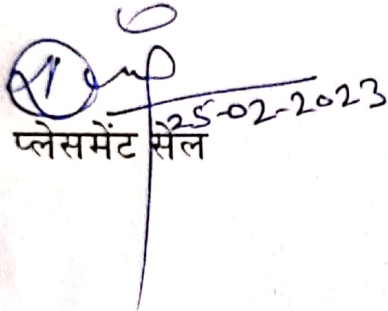 25-02-2023
प्लेसमेंट सेल